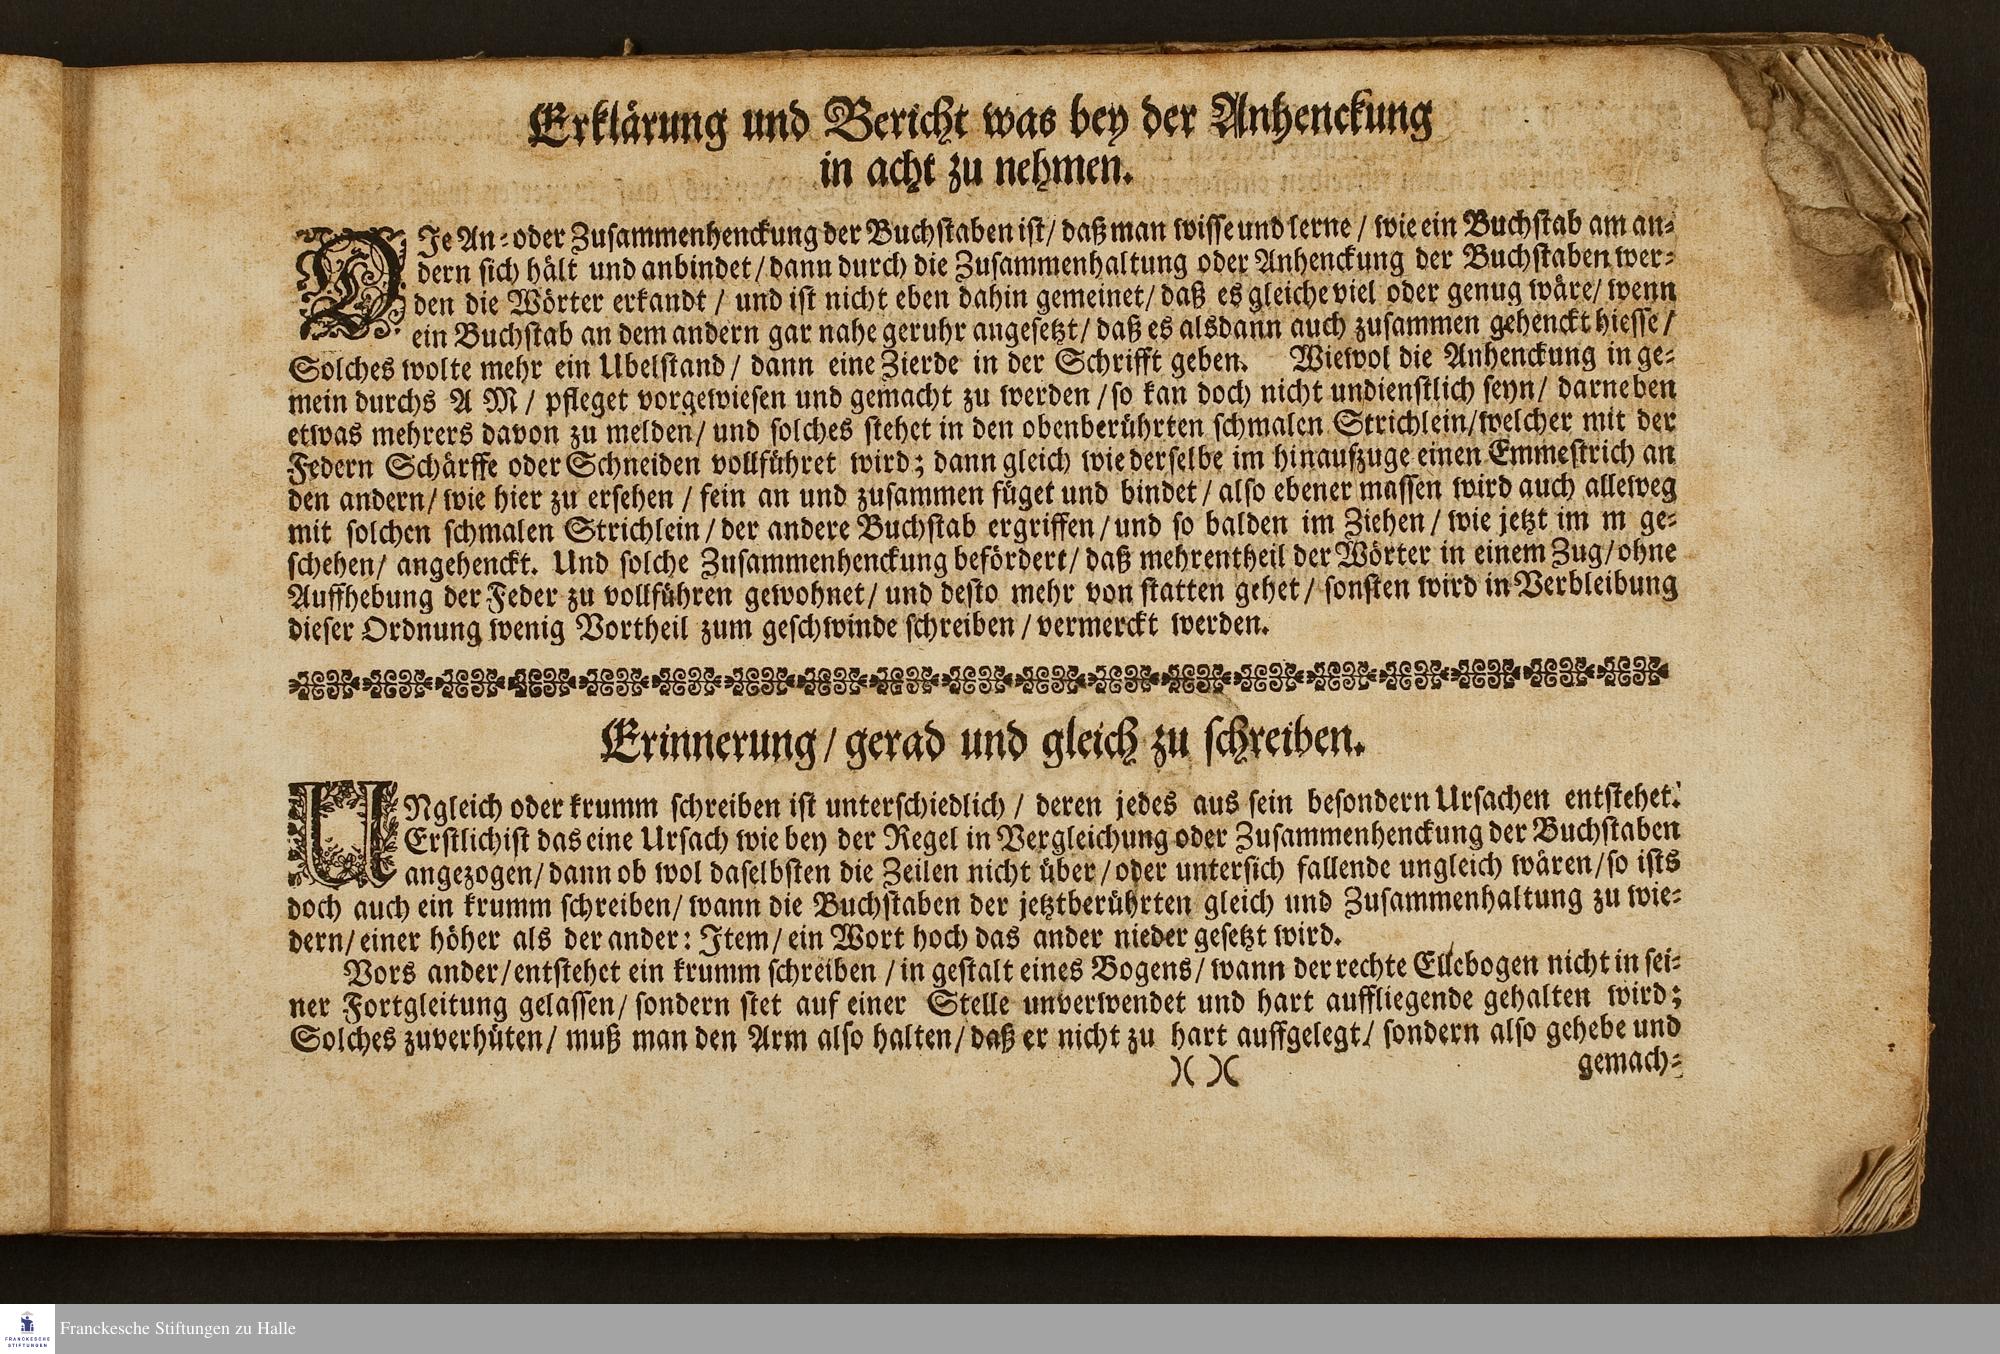 Erklärung und Bericht was bey der Anhenckung
in acht zu nehmen.
DJe An- oder Zusammenhenckung der Buchstaben ist/ daß man wisse und lerne / wie ein Buchstab am an-
dern sich hält und anbindet / dann durch die Zusammenhaltung oder Anhenckung der Buchstaben wer-
den die Wörter erkandt / und ist nicht eben dahin gemeinet/ daß es gleiche viel oder genug wäre/ wenn
ein Buchstab an dem andern gar nahe geruhr angesetzt/ daß es alsdann auch zusammen gehenckt hiesse /
Solches wolte mehr ein Ubelstand / dann eine Zierde in der Schrifft geben. Wiewol die Anhenckung in ge-
mein durchs A M / pfleget vorgewiesen und gemacht zu werden / so kan doch nicht undienstlich seyn/ darneben
etwas mehrers davon zu melden/ und solches stehet in den obenberührten schmalen Strichlein/welcher mit der
Federn Schärffe oder Schneiden vollführet wird; dann gleich wie derselbe im hinaufzuge einen Emmestrich an
den andern/ wie hier zu ersehen / fein an und zusammen füget und bindet / also ebener massen wird auch alleweg
mit solchen schmalen Strichlein / der andere Buchstab ergriffen / und so balden im Ziehen / wie jetzt im m ge-
schehen/ angehenckt. Und solche Zusammenhenckung befördert/ daß mehrentheil der Wörter in einem Zug/ ohne
Auffhebung der Feder zu vollführen gewohnet/ und desto mehr von statten gehet / sonsten wird in Verbleibung
dieser Ordnung wenig Vortheil zum geschwinde schreiben / vermerckt werden.
Erinnerung/ gerad und gleich zu schreiben.
UNgleich oder krumm schreiben ist unterschiedlich / deren jedes aus sein besondern Ursachen entstehet.
Erstlich ist das eine Ursach wie bey der Regel in Vergleichung oder Zusammenhenckung der Buchstaben
angezogen/ dann ob wol daselbsten die Zeilen nicht über / oder untersich fallende ungleich wären/ so ists
doch auch ein krumm schreiben/ wann die Buchstaben der jetztberührten gleich und Zusammenhaltung zu wie-
dern/ einer höher als der ander: Jtem/ ein Wort hoch das ander nieder gesetzt wird.
Vors ander/entstehet ein krumm schreiben / in gestalt eines Bogens/ wann der rechte Ellebogen nicht in sei-
ner Fortgleitung gelassen/ sondern stet auf einer Stelle unverwendet und hart auffliegende gehalten wird;
Solches zuverhüten/ muß man den Arm also halten/ daß er nicht zu hart auffgelegt/ sondern also gehebe und
)( )( gemach-
Franckesche Stiftungen zu Halle
FRANCKESCHE
STIFTUNGEN